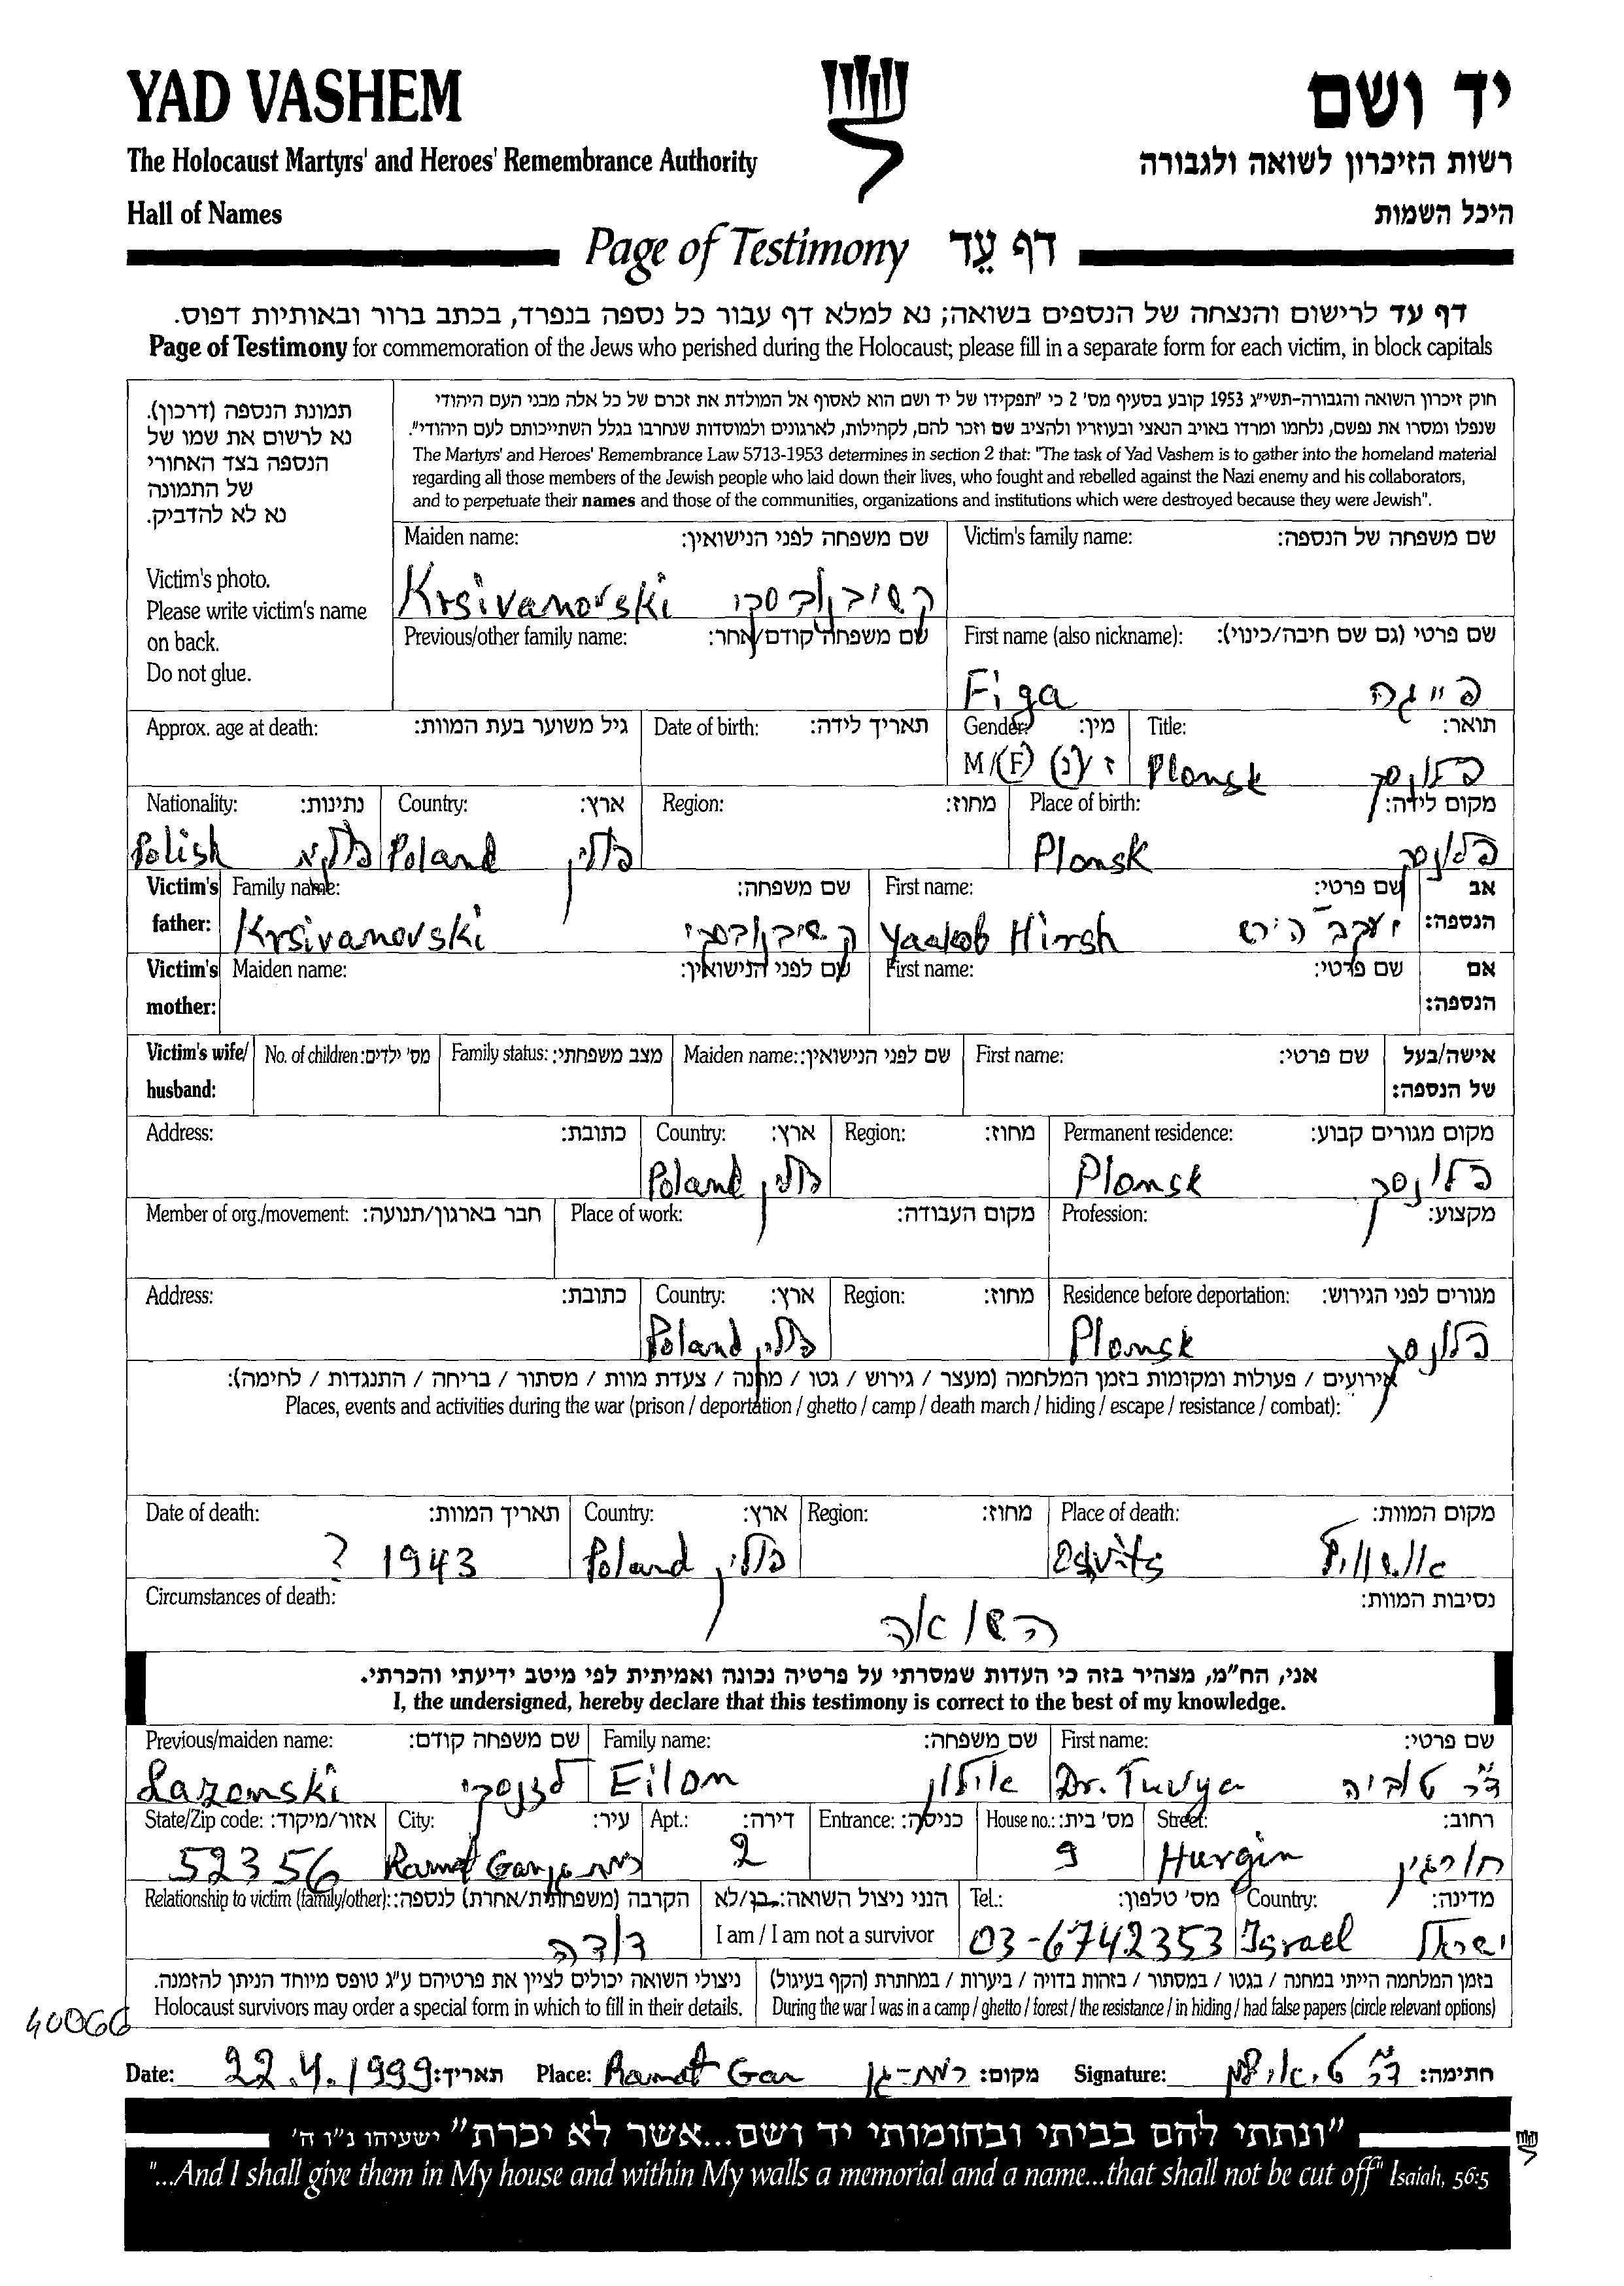 YAD VASHEM
יד ושם
The Holocaust Martyrs' and Heroes' Remembrance Authority
רשות הזיכרון לשואה ולגבורה
Hall of Names
היכל השמות
Page of Testimony דף עֵד
דף עד לרישום והנצחה של הנספים בשואה; נא למלא דף עבור כל נספה בנפרד, בכתב ברור ובאותיות דפוס.
Page of Testimony for commemoration of the Jews who perished during the Holocaust; please fill in a separate form for each victim, in block capitals
תמונת הנספה (דרכון).
נא לרשום את שמו של
הנספה בצד האחורי
של התמונה
נא לא להדביק.
Victim's photo.
Please write victim's name
on back.
Do not glue.
חוק זיכרון השואה והגבורה-תשי"ג 1953 קובע בסעיף מס' 2 כי "תפקידו של יד ושם הוא לאסוף אל המולדת את זכרם של כל אלה מבני העם היהודי
שנפלו ומסרו את נפשם, נלחמו ומרדו באויב הנאצי ובעוזריו ולהציב שם וזכר להם, לקהילות, לארגונים ולמוסדות שנחרבו בגלל השתייכותם לעם היהודי".
The Martyrs' and Heroes' Remembrance Law 5713-1953 determines in section 2 that: "The task of Yad Vashem is to gather into the homeland material
regarding all those members of the Jewish people who laid down their lives, who fought and rebelled against the Nazi enemy and his collaborators,
and to perpetuate their names and those of the communities, organizations and institutions which were destroyed because they were Jewish".
Maiden name: שם משפחה לפני הנישואין: Victim's family name: שם משפחה של הנספה:
Krsivanovski קשיבנובסקי
Previous/other family name: שם משפחה קודם/אחר: First name (also nickname): שם פרטי (גם שם חיבה/כינוי):
Figa פייגה
Approx. age at death: גיל משוער בעת המוות: Date of birth: תאריך לידה: Gender: מין: Title: תואר:
M/(F) ז/(נ) Plonsk פלונסק
Nationality: נתינות: Country: ארץ: Region: מחוז: Place of birth: מקום לידה:
Polish Poland פולין Plonsk פלונסק
Victim's father: Family name: שם משפחה: First name: שם פרטי: אב הנספה:
Krsivanovski קשיבנובסקי Yaakob Hirsh יעקב הירש
Victim's mother: Maiden name: שם לפני הנישואין: First name: שם פרטי: אם הנספה:
Victim's wife/ husband: No. of children: מס' ילדים: Family status: מצב משפחתי: Maiden name: שם לפני הנישואין: First name: שם פרטי: אישה/בעל של הנספה:
Address: כתובת: Country: ארץ: Region: מחוז: Permanent residence: מקום מגורים קבוע:
Poland פולין Plonsk פלונסק
Member of org./movement: חבר בארגון/תנועה: Place of work: מקום העבודה: Profession: מקצוע:
Address: כתובת: Country: ארץ: Region: מחוז: Residence before deportation: מגורים לפני הגירוש:
Poland פולין Plonsk פלונסק
אירועים / פעולות ומקומות בזמן המלחמה (מעצר / גירוש / גטו / מחנה / צעדת מוות / מסתור / בריחה / התנגדות / לחימה):
Places, events and activities during the war (prison / deportation / ghetto / camp / death march / hiding / escape / resistance / combat):
Date of death: תאריך המוות: Country: ארץ: Region: מחוז: Place of death: מקום המוות:
? 1943 Poland פולין Osvits אושוויץ
Circumstances of death: נסיבות המוות:
השואה
אני, הח"מ, מצהיר בזה כי העדות שמסרתי על פרטיה נכונה ואמיתית לפי מיטב ידיעתי והכרתי.
I, the undersigned, hereby declare that this testimony is correct to the best of my knowledge.
Previous/maiden name: שם משפחה קודם: Family name: שם משפחה: First name: שם פרטי:
Lazenski לזנסקי Eilon אילון Dr. Tuvya ד"ר טוביה
State/Zip code: אזור/מיקוד: City: עיר: Apt.: דירה: Entrance: כניסה: House no.: מס' בית: Street: רחוב:
52356 Ramat Gan רמת גן 2 9 Hurgin חורגין
Relationship to victim (family/other): הקרבה (משפחתית/אחרת) לנספה: הנני ניצול השואה: כן/לא Tel.: מס' טלפון: Country: מדינה:
דודה I am / I am not a survivor 03-6742353 Israel ישראל
ניצולי השואה יכולים לציין את פרטיהם ע"ג טופס מיוחד הניתן להזמנה. בזמן המלחמה הייתי במחנה / בגטו / במסתור / בזהות בדויה / ביערות / במחתרת (הקף בעיגול)
Holocaust survivors may order a special form in which to fill in their details. During the war I was in a camp / ghetto / forest / the resistance / in hiding / had false papers (circle relevant options)
40066
Date: 22.4.1999 תאריך: Place: Ramat Gan רמת-גן מקום: Signature: ד"ר ט. אילון חתימה:
"ונתתי להם בביתי ובחומותי יד ושם...אשר לא יכרת" ישעיהו נ"ו ה'
"...And I shall give them in My house and within My walls a memorial and a name...that shall not be cut off" Isaiah, 56:5